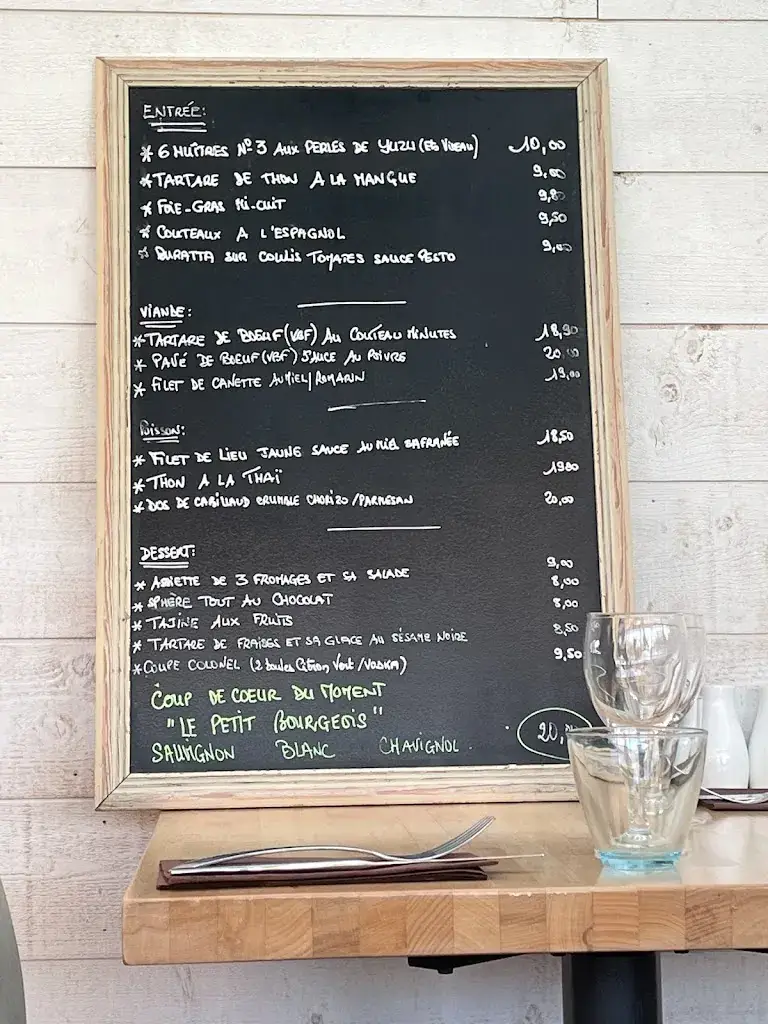 ENTRÉE:
* 6 HUÎTRES N°3 AUX PERLES DE YUZU 10,00
* TARTARE DE THON A LA MANGUE 9,00
* FOIE-GRAS MI-CUIT 9,80
* COUTEAUX A L'ESPAGNOL 9,50
* BURATTA SUR COULIS TOMATES SAUCE PESTO 9,00
VIANDE:
* TARTARE DE BOEUF (VBF) AU COUTEAU MINUTES 18,90
* PAVÉ DE BOEUF (VBF) SAUCE AU POIVRE 20,00
* FILET DE CANETTE AU MIEL/ROMARIN 19,00
POISSON:
* FILET DE LIEU JAUNE SAUCE AU MIEL SAFRANÉE 18,50
* THON A LA THAÏ 1980
* DOS DE CABILLAUD CRUMBLE CHORIZO/PARMESAN 20,00
DESSERT:
* ASSIETTE DE 3 FROMAGES ET SA SALADE 9,00
* SPHÈRE TOUT AU CHOCOLAT 8,00
* TAJINE AUX FRUITS 8,00
* TARTARE DE FRAISES ET SA GLACE AU SÉSAME NOIRE 8,50
* COUPE COLONEL (2 boules Citron Vert/VODKA) 9,50
COUP DE COEUR DU MOMENT
"LE PETIT BOURGEOIS"
SAUVIGNON BLANC CHAVIGNOL. 20,